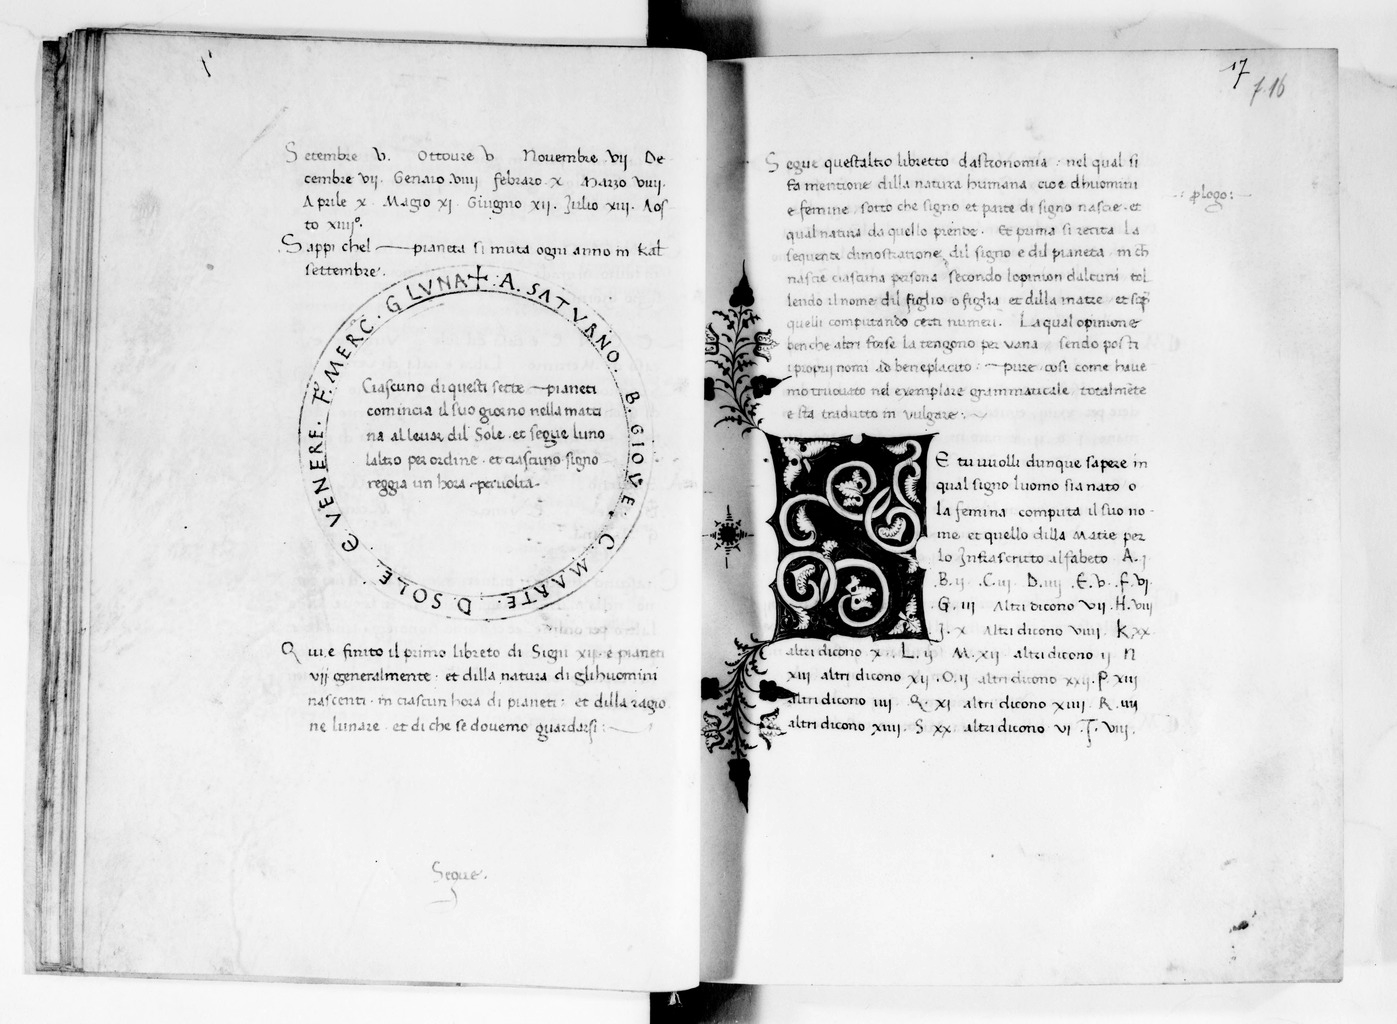 Setembre v. Ottoure v Nouembre vij De
cembre vij. Genaro viiij febraro x Marzo viiij.
Aprile x Magio xj Giugnio xij. Julio xiij. Aos
to xiiijº.
Sappi chel pianeta si muta ogni anno in kal
settembre.
A. SATVRNO. B. GIOVE. C. MARTE. D. SOLE. E VENERE. F. MERC. G LVNA
Ciascuno di questi sette pianeti
comincia il suo giorno nella mati
na al leuar dil Sole. et segue luno
laltro per ordine. et ciascuno signo
reggia un hora per volta.
Qui. e finito il primo libreto di Signi xij. e pianeti
vij generalmente. et dilla natura di gli huomini
nascenti. in ciascun hora di pianeti: et dilla ragio
ne lunare. et di che se douemo guardarsi:
Segue.
17
f. 16
Segue questaltro libretto dastronomia: nel qual si
fa mentione dilla natura humana cioe dhuomini
e femine. sotto che signo et parte di signo nascie. et
qual natura da quello piende. Et prima si recita la
sequente dimostratione dil signo e dil pianeta. in ch
nascie ciascuna persona secondo lopinion dalcuni tol
lendo il nome dil figlio o figlia et dilla matre et sop
quelli computando certi numeri. La qual opinione
ben che altri forse la tengono per vana sendo posti
i proprij nomi ad beneplacito: pure cosi come haue
mo truouato nel exemplare grammaticale totalmēte
e sta tradutto in vulgare:
plogo:
E tu uuolli dunque sapere in
qual signo luomo sia nato o
la femina computa il suo no-
me et quello dilla Matre per
lo Infrascritto alfabeto A. j
.B. ij .C. iij D. iiij .E. v. F. vj
.G. iij Altri dicono vij. H. viij
.J. x Altri dicono viiij. K xx.
altri dicono x. L. ij M. xij altri dicono ij N
xiij altri dicono xij .O. ij altri dicono xxij. P. xiij
altri dicono iiij .Q. xj altri dicono xiiij R. iiij
altri dicono xiiij. S xx altri dicono vj .T. viij.